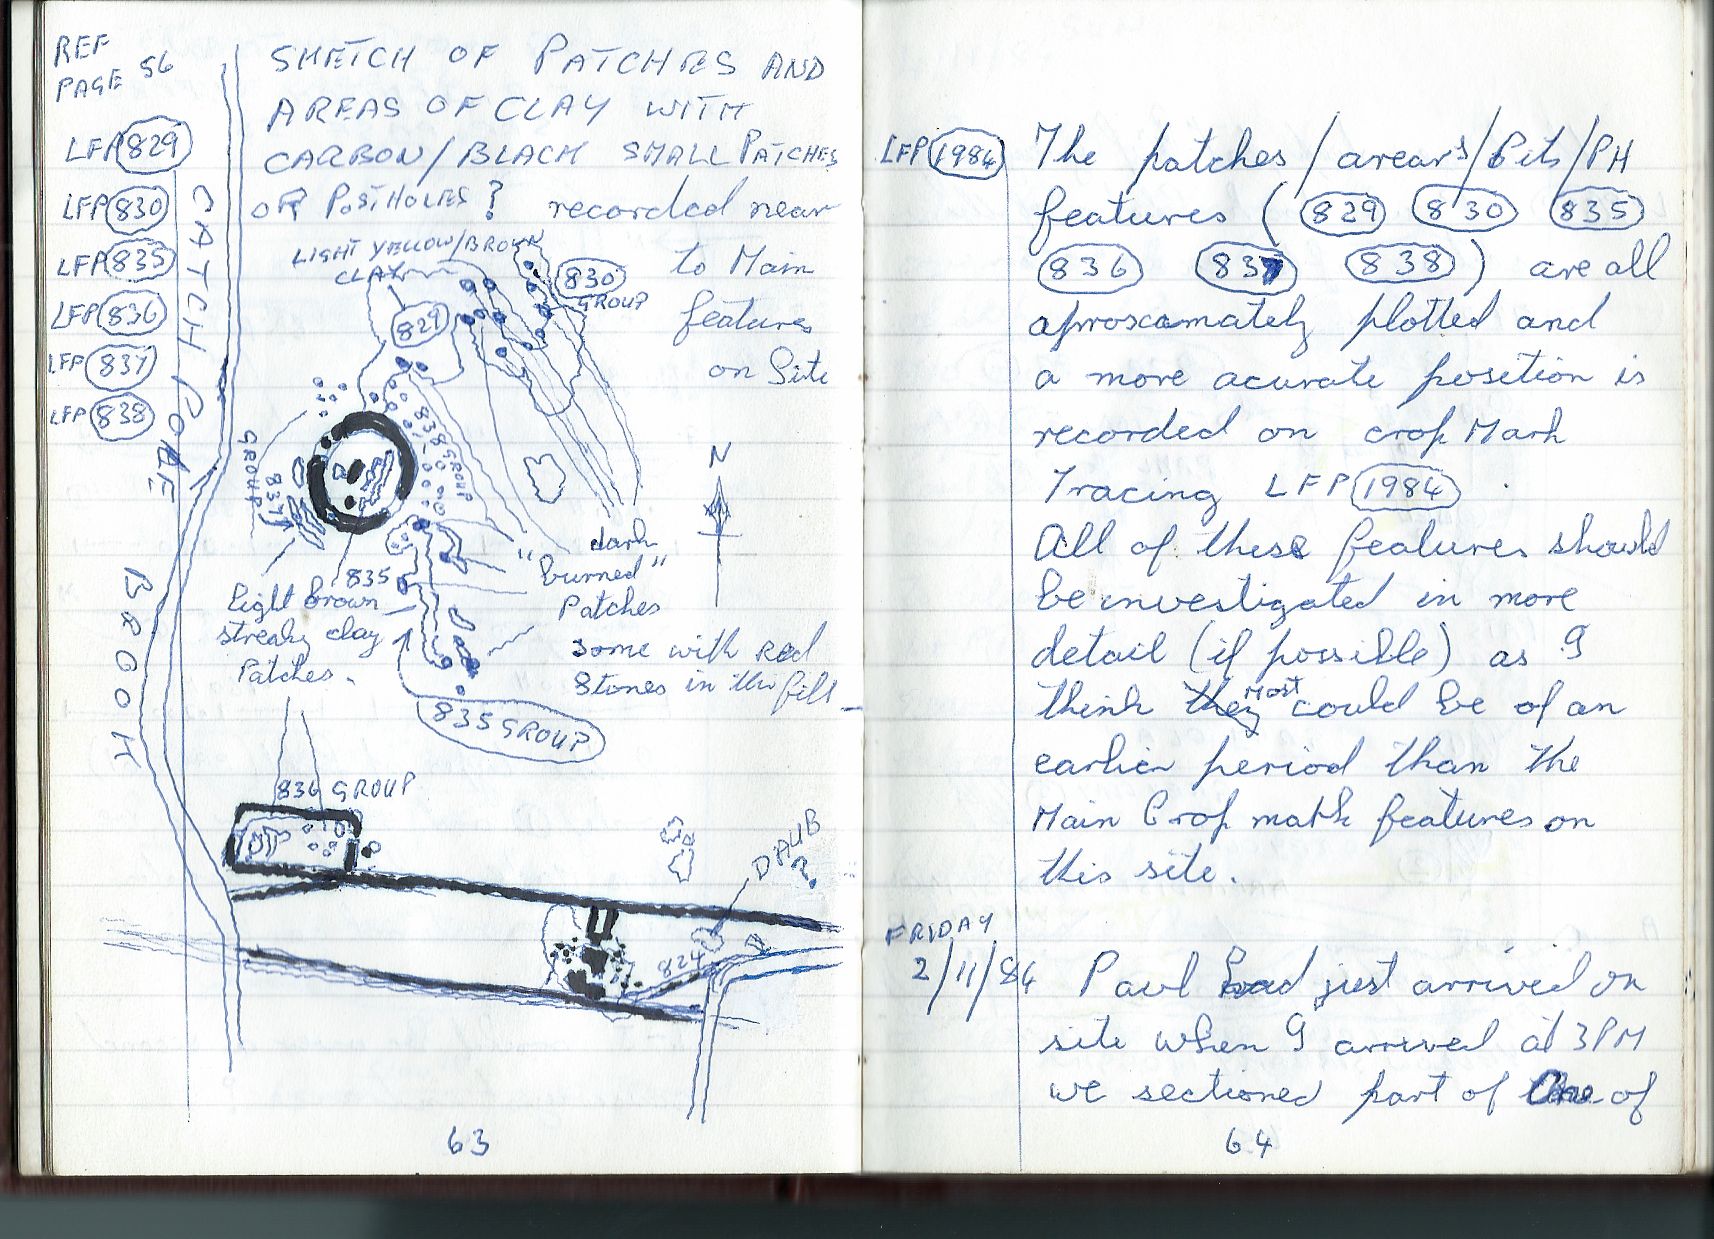 REF
PAGE 56
LFP 829
LFP 830
LFP 835
LFP 836
LFP 837
LFP 838
CATCH POLE BROOK
SKETCH OF PATCHES AND
AREAS OF CLAY WITH
CARBON/BLACK SMALL PATCHES
OR POSTHOLES? recorded near
to Main
features
on Site
LIGHT YELLOW/BROWN
CLAY
829
830
GROUP
838 GROUP
837
GROUP
N
835
light brown
streaky clay
Patches.
dark
"burned"
Patches
some with Red
Stones in the fill
835 GROUP
836 GROUP
DAUB
?
824
63
LFP 1984 The patches/arears/Pits/PH
features (829 830 835
836 837 838) are all
aproxamately plotted and
a more acurate position is
recorded on crop Mark
Tracing LFP 1984.
All of these features should
be investigated in more
detail (if possible) as I
think they Most could be of an
earlier period than the
Main Crop mark features on
this site.
FRIDAY
2/11/84 Paul had just arrived on
site when I arrived at 3PM
we sectioned part of One of
64